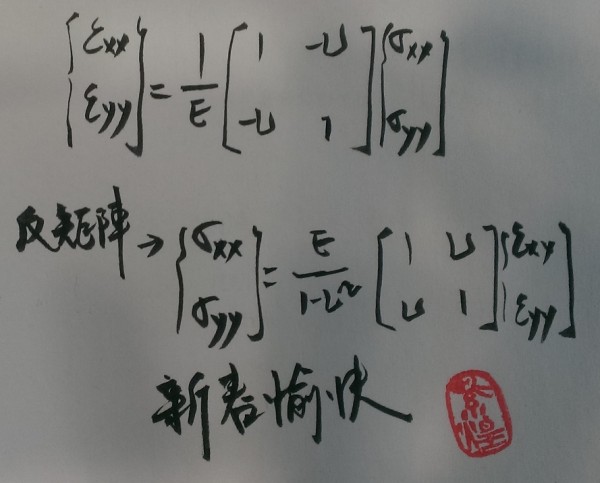 {εxx εyy} = 1/E [1 -υ -υ 1] {σxx σyy}
反矩陣 → {σxx σyy} = E/1-υ² [1 υ υ 1] {εxx εyy}
新春愉快